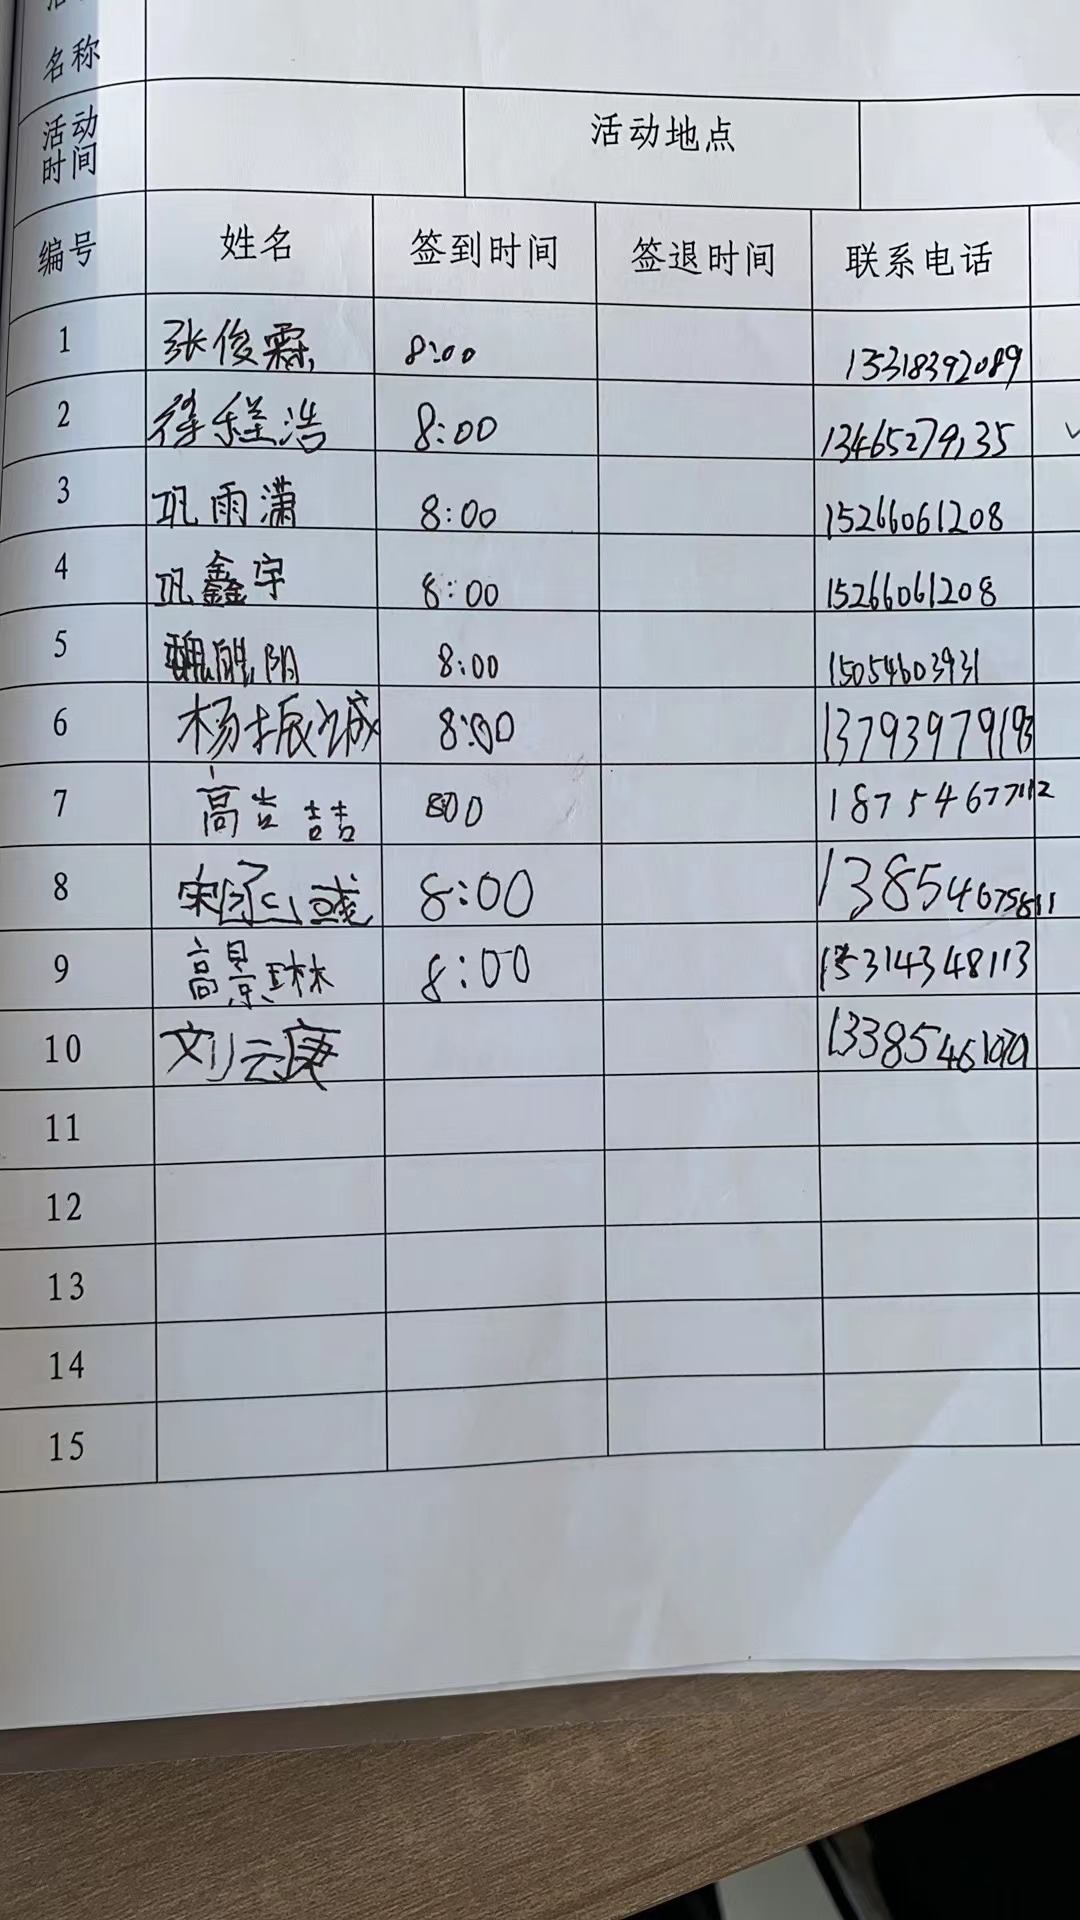 名称
活动时间 活动地点
编号 姓名 签到时间 签退时间 联系电话
1 张俊霖 8:00 15318392089
2 徐程浩 8:00 13465279135
3 巩雨潇 8:00 15266061208
4 巩鑫宇 8:00 15266061208
5 魏 阴 8:00 15054603931
6 杨振诚 8:00 13793979193
7 高吉喆 800 18754677112
8 宋 彧 8:00 13854675811
9 高景琳 8:00 15314348113
10 刘云庚
11
12
13
14
15